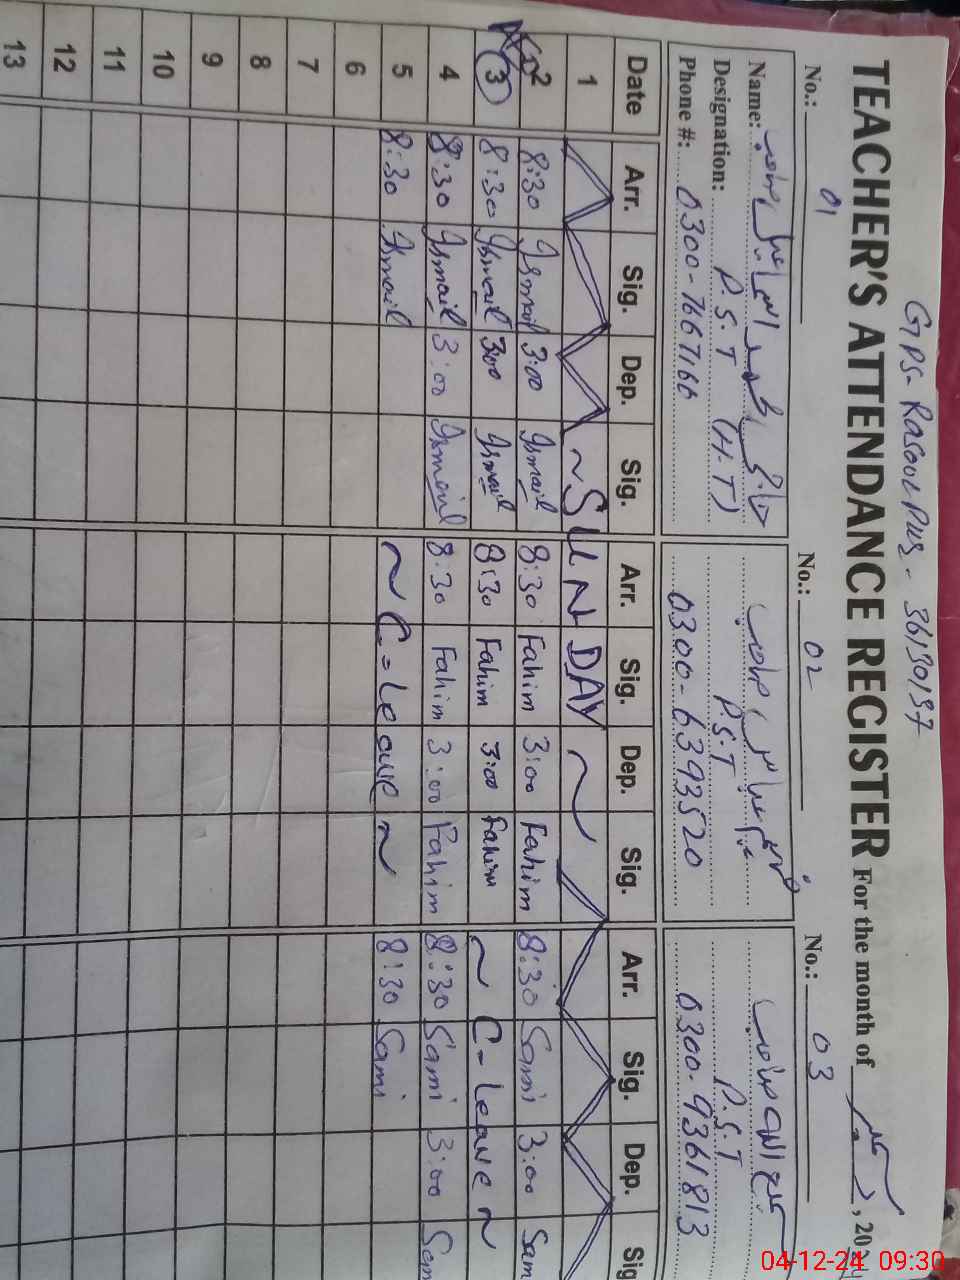 GPS- Rasool Pur - 36130197
TEACHER'S ATTENDANCE REGISTER For the month of دسمبر, 2024
No.: 01 No.: 02 No.: 03
Name: حافظ محمد اسماعیل صاحب
Designation: P.S.T (H.T) P.S.T P.S.T
Phone #: 0300-7667166 0300-6393520 0300-9361813
Date Arr. Sig. Dep. Sig. Arr. Sig. Dep. Sig. Arr. Sig. Dep. Sig
1 ~ SUNDAY ~
2 8:30 Ismail 3:00 Ismail 8:30 Fahim 3:00 Fahim 8:30 Sami 3:00 Sam
3 8:30 Ismail 3:00 Ismail 8:30 Fahim 3:00 Fahim ~ C=Leave ~
4 8:30 Ismail 3:00 Ismail 8:30 Fahim 3:00 Fahim 8:30 Sami 3:00 Sam
5 8:30 Ismail ~ C=Leave ~ 8:30 Sami
6
7
8
9
10
11
12
13
04-12-24 09:30